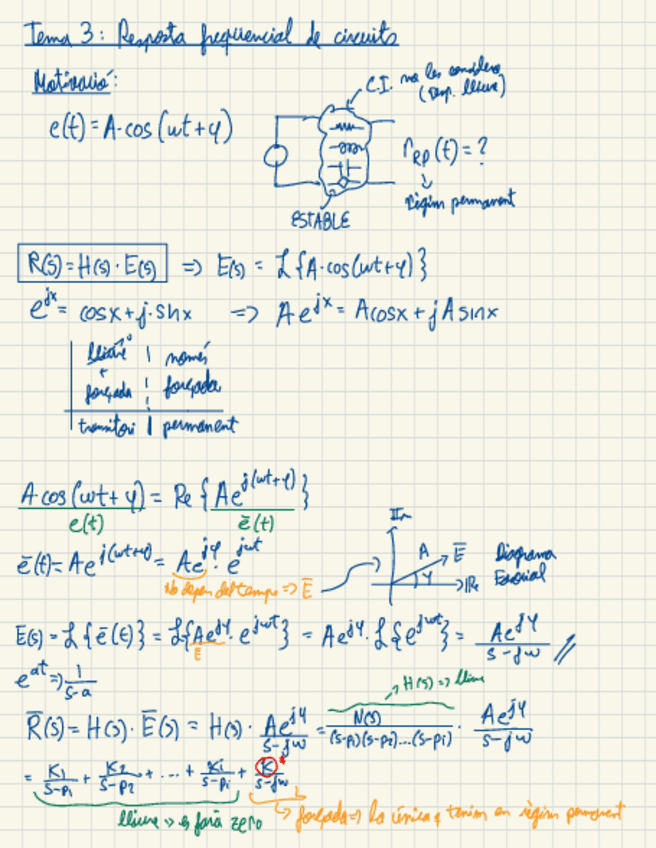 Tema 3: Resposta freqüencial de circuits
Motivació:
e(t) = A·cos(wt+φ)
C.I. no les considero
(resp. lliure)
r_RP(t) = ?
règim permanent
ESTABLE
R(s) = H(s)·E(s) => E(s) = L{A·cos(wt+φ)}
e^jx = cosx + j·sinx => Ae^jx = Acosx + jAsinx
lliure | només
+
forçada | forçada
transitori | permanent
A·cos(wt+φ) = Re{Ae^j(wt+φ)}
e(t) ē(t)
ē(t) = Ae^j(wt+φ) = Ae^jφ · e^jwt
No depen del temps => Ē
Im
A Ē
φ
Re
Diagrama
Ē(s) = L{ē(t)} = L{Ae^jφ · e^jwt} = Ae^jφ · L{e^jwt} = Ae^jφ / (s-jw) //
Ē
e^at => 1/(s-a)
H(s) => lliure
R̄(s) = H(s)·Ē(s) = H(s)· Ae^jφ/(s-jw) = N(s)/((s-p1)(s-p2)...(s-pi)) · Ae^jφ/(s-jw)
= K1/(s-p1) + K2/(s-p2) + ... + Ki/(s-pi) + K*/(s-jw)
lliure => es farà zero
forçada => la única q tenim en règim permanent